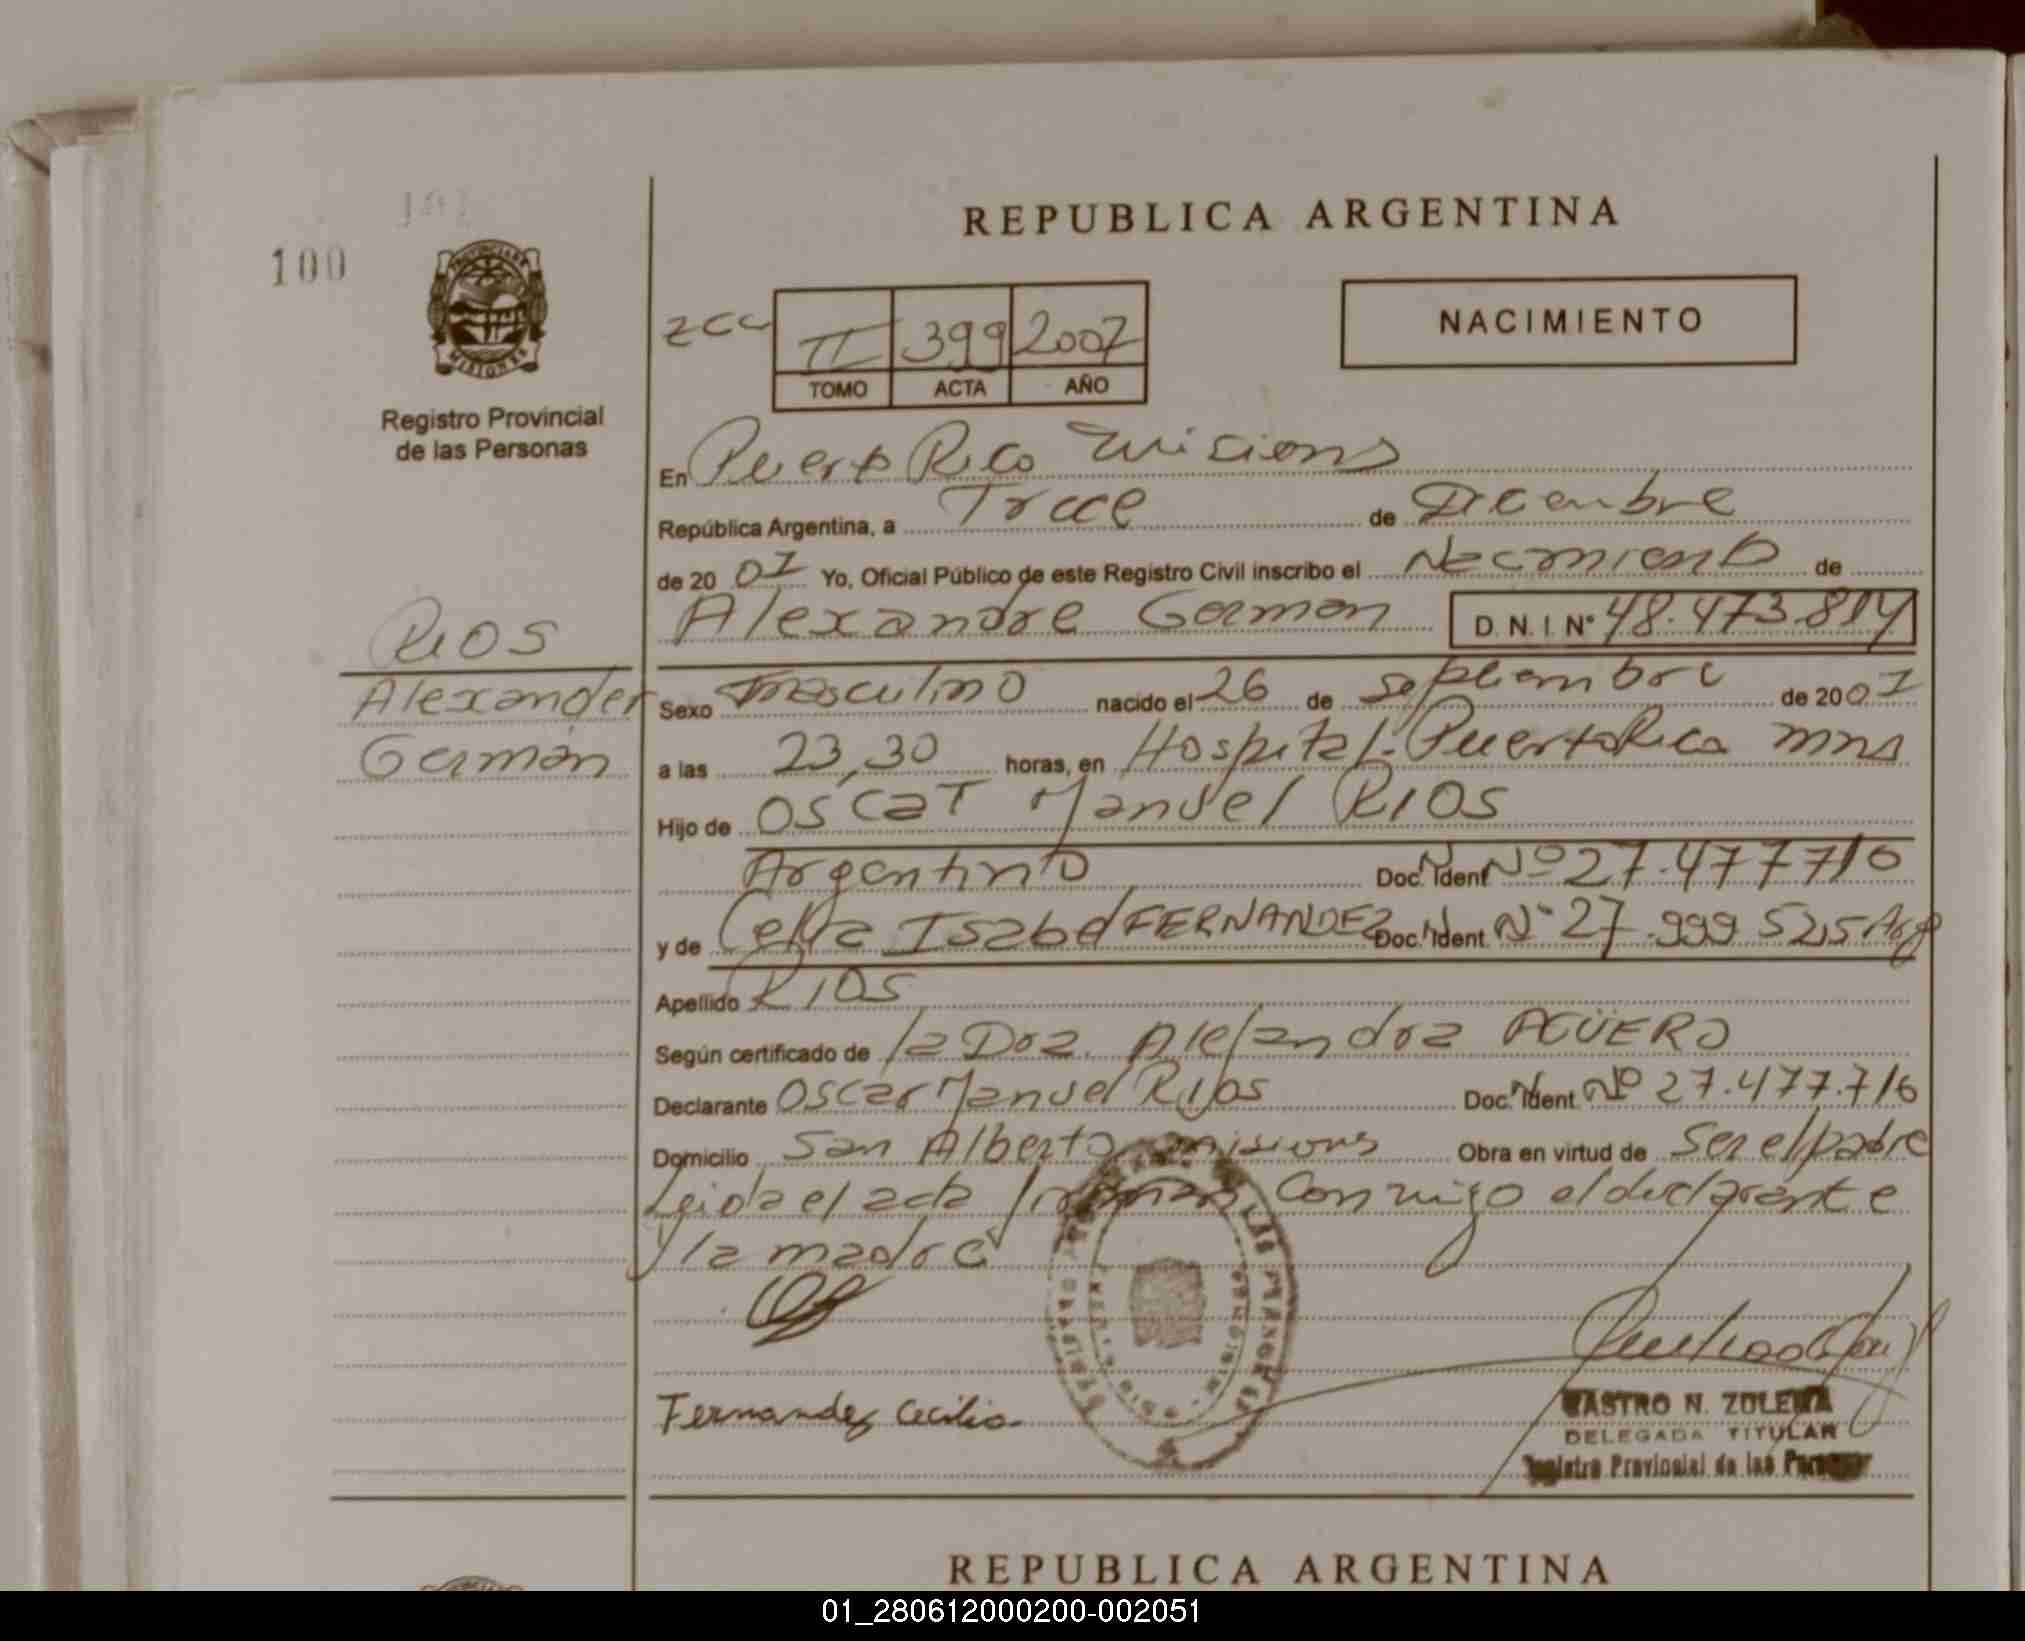 101
100
PROVINCIA DE
MISIONES
Registro Provincial
de las Personas
REPUBLICA ARGENTINA
II 399 2007
TOMO ACTA AÑO
NACIMIENTO
En Puerto Rico Misiones
República Argentina, a Trece de Diciembre
de 2007 Yo, Oficial Público de este Registro Civil inscribo el Nacimiento de
Alexandre German D.N.I. Nº 48.473.814
RIOS
Alexander
Germán
Sexo masculino nacido el 26 de septiembre de 2007
a las 23,30 horas, en Hospital Puerto Rico mns
Hijo de Oscar Manuel RIOS
Argentino Doc. Ident Nº 27.477716
y de Isabel FERNANDEZ Doc. Ident. Nº 27.999525 Arg
Apellido RIOS
Según certificado de la Dra. Alejandra AGÜERO
Declarante Oscar Manuel Rios Doc. Ident. Nº 27.477.716
Domicilio San Alberto misiones Obra en virtud de Ser el padre
Leida el acta firman conmigo el declarante
y la madre
Fernandez Cecilia
N. ZULEMA
DELEGADA TITULAR
Registro Provincial de las Personas
REPUBLICA ARGENTINA
01_280612000200-002051